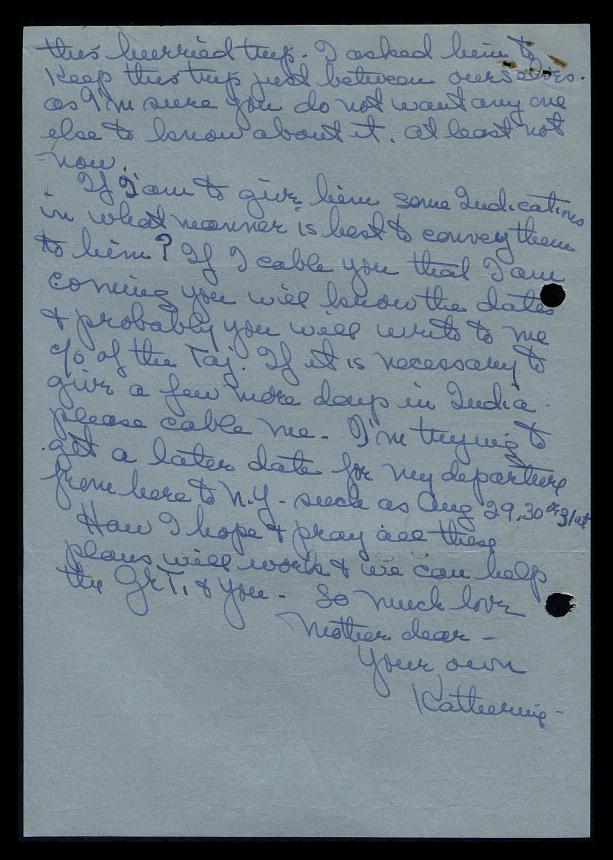 this hurried trip. I asked him to
keep this trip just between ourselves.
as I'm sure you do not want any one
else to know about it. at least not
now.
If I am to give him some Indications
in what manner is best to convey them
to him? If I cable you that I am
coming you will know the dates
& probably you will write to me
c/o of the Taj. If it is necessary to
give a few more days in India
please cable me. I'm trying to
get a later date for my departure
from here to N.Y. such as Aug 29, 30 or 31st
How I hope & pray all these
plans will work & we can help
the Gr T. & you. So much love
Mother dear -
Your own
Katherine -